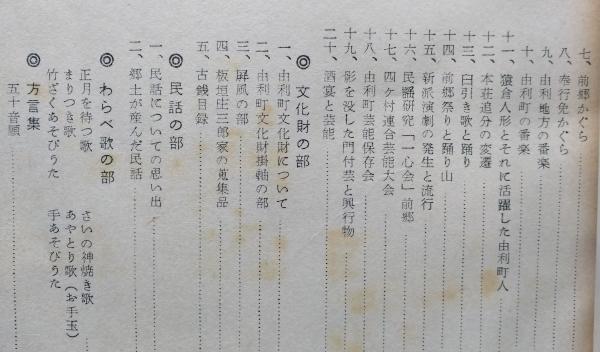 七、前郷かぐら
八、奉行免かぐら
九、由利地方の番楽
十、由利町の番楽
十一、猿倉人形とそれに活躍した由利町人
十二、本荘追分の変遷
十三、臼引き歌と踊り
十四、前郷祭りと踊り山
十五、新派演劇の発生と流行
十六、民謡研究「一心会」前郷
十七、四ケ村連合芸能大会
十八、由利町芸能保存会
十九、影を没した門付芸と興行物
二十、酒宴と芸能
◎ 文化財の部
一、由利町文化財について
二、由利町文化財掛軸の部
三、屏風の部
四、板垣庄三郎家の蒐集品
五、古銭目録
◎ 民話の部
一、民話についての思い出
二、郷土が産んだ民話
◎ わらべ歌の部
正月を待つ歌 さいの神焼き歌
まりつき歌 あやとり歌(お手玉)
竹ざくあそびうた 手あそびうた
◎ 方言集
五十音順